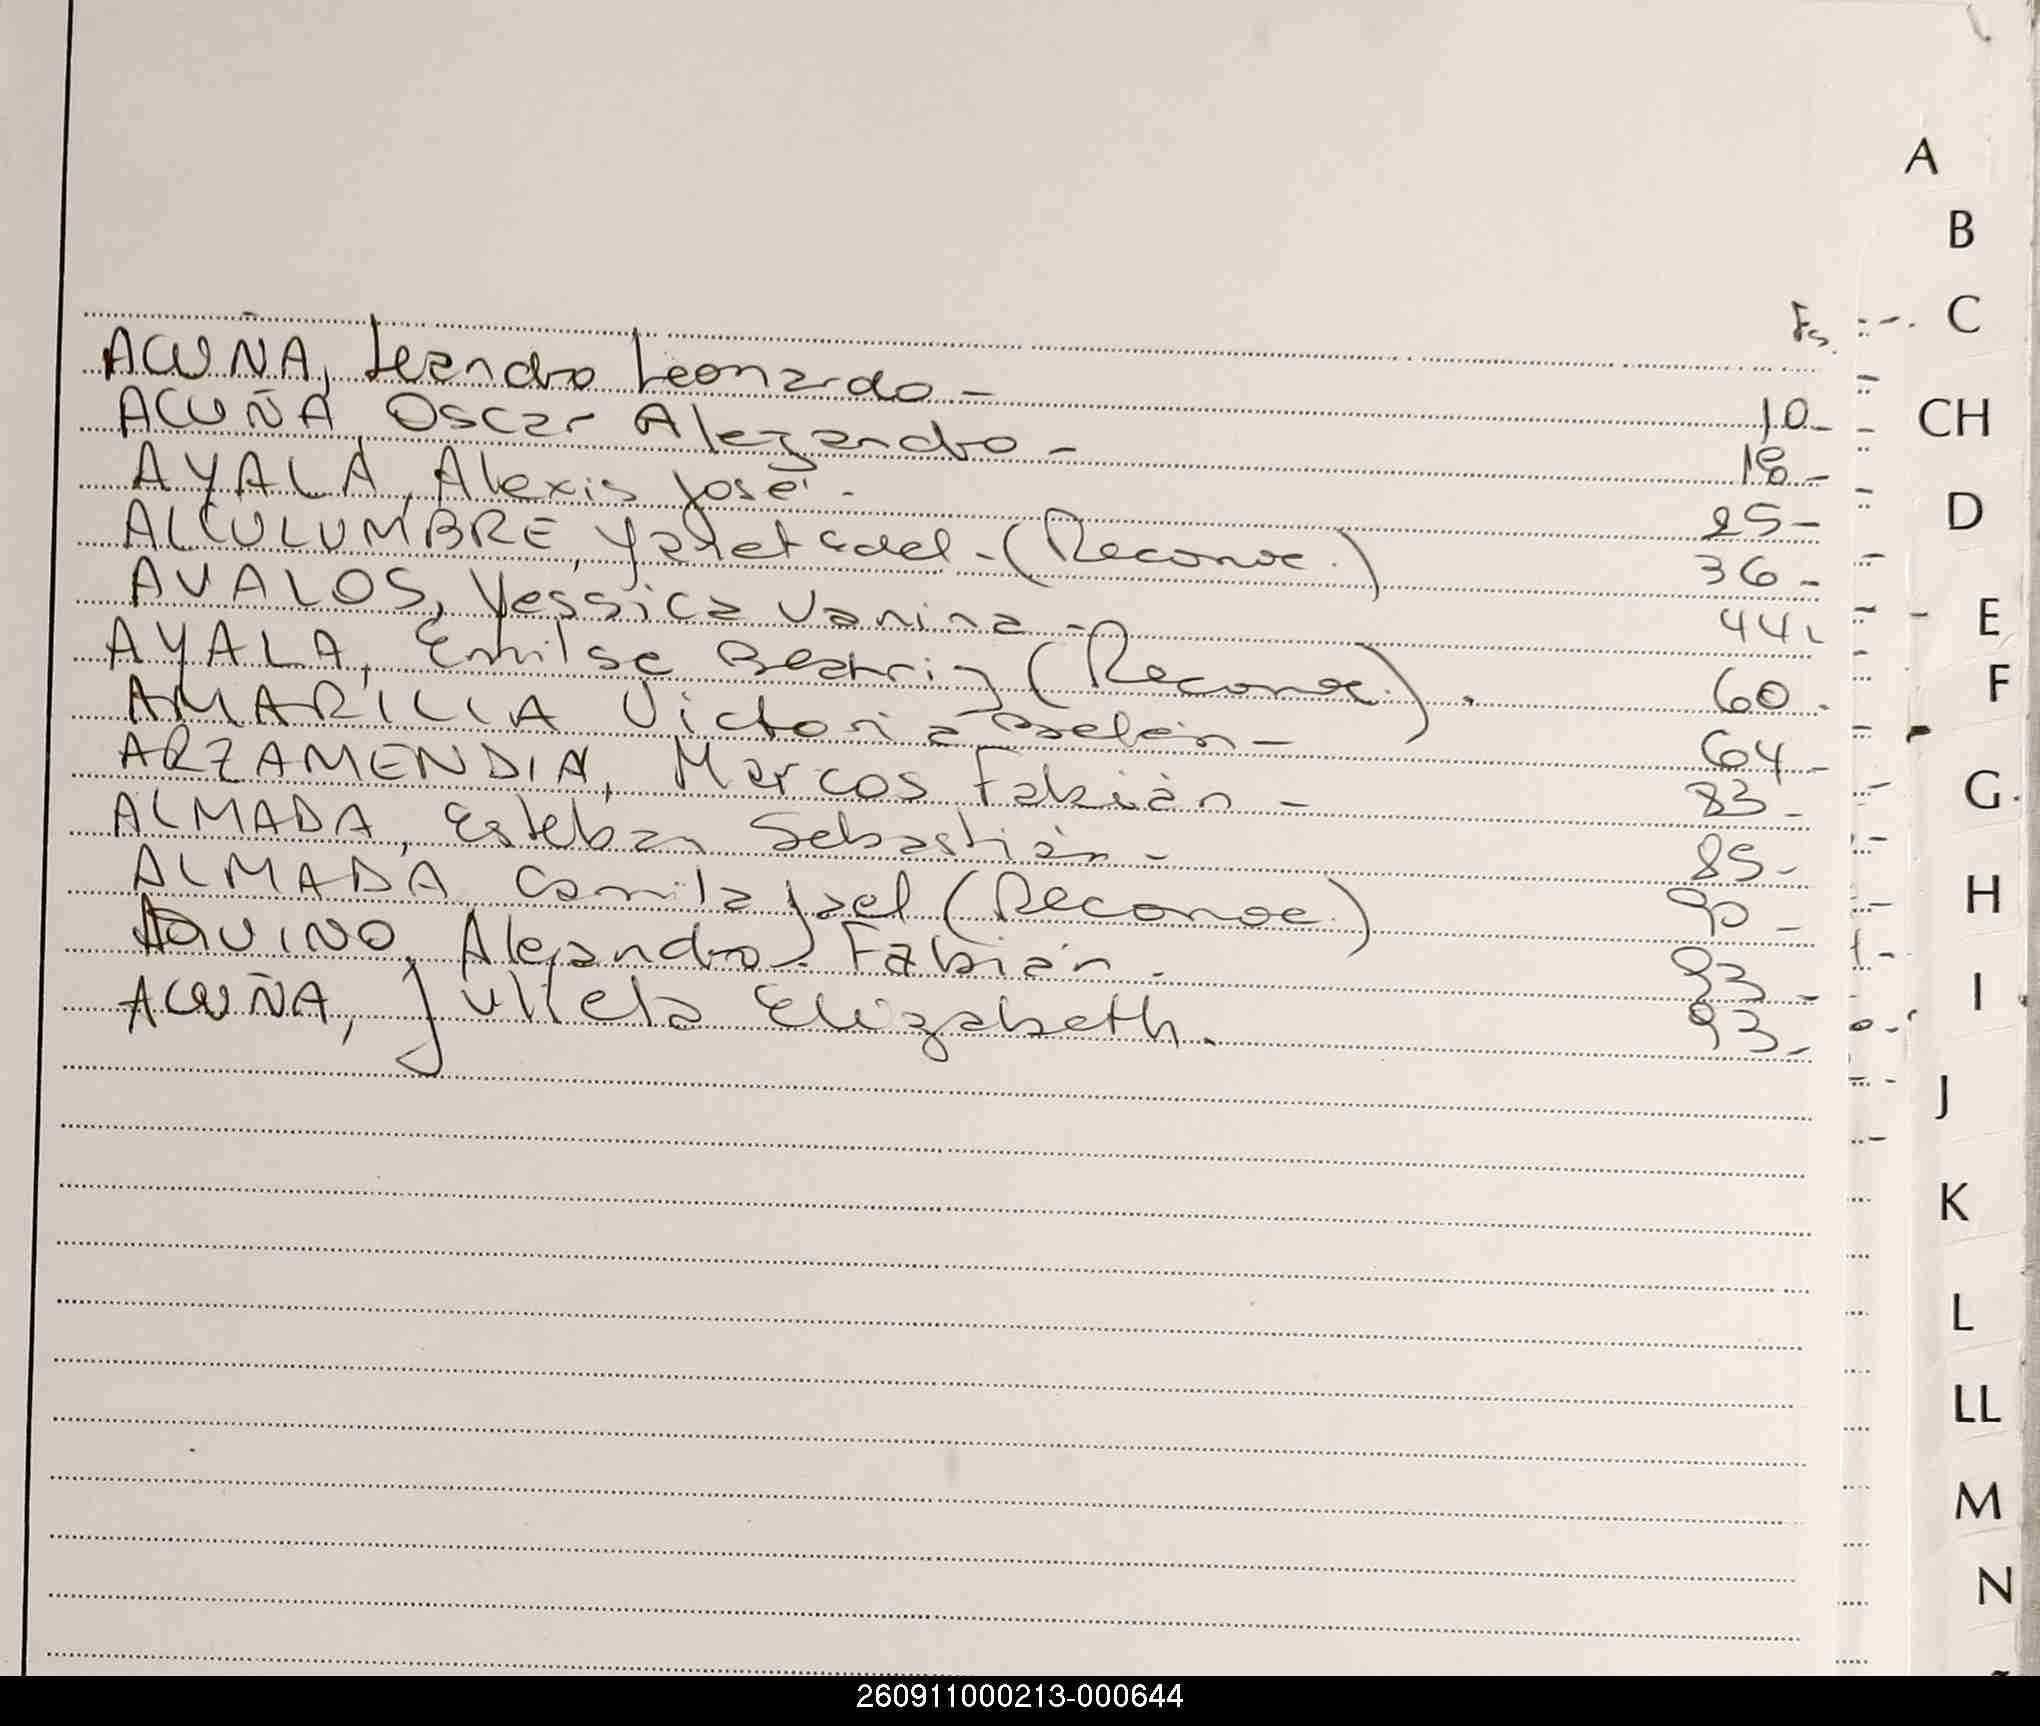 A
B
Fs. C
ACUÑA, Leandro Leonardo - 10-
CH
ACUÑA, Oscar Alejandro - 18-
AYALA, Alexis José. - 25-
D
ALCULUMBRE, Yaret (Reconoc.) 36-
AVALOS, Yessica Vanina - 44
E
AYALA, Emilse Beatriz (Reconoc.). 60.
F
AMARILLA Victoria Belén - 64-
ARZAMENDIA, Marcos Fabián - 83-
G
ALMADA, Esteban Sebastián - 85-
ALMADA Camila Jael (Reconoc.) 90-
H
AQUINO, Alejandro Fabián. 93-
ACUÑA, Julieta Elizabeth. 93-
I
J
K
L
LL
M
N
260911000213-000644